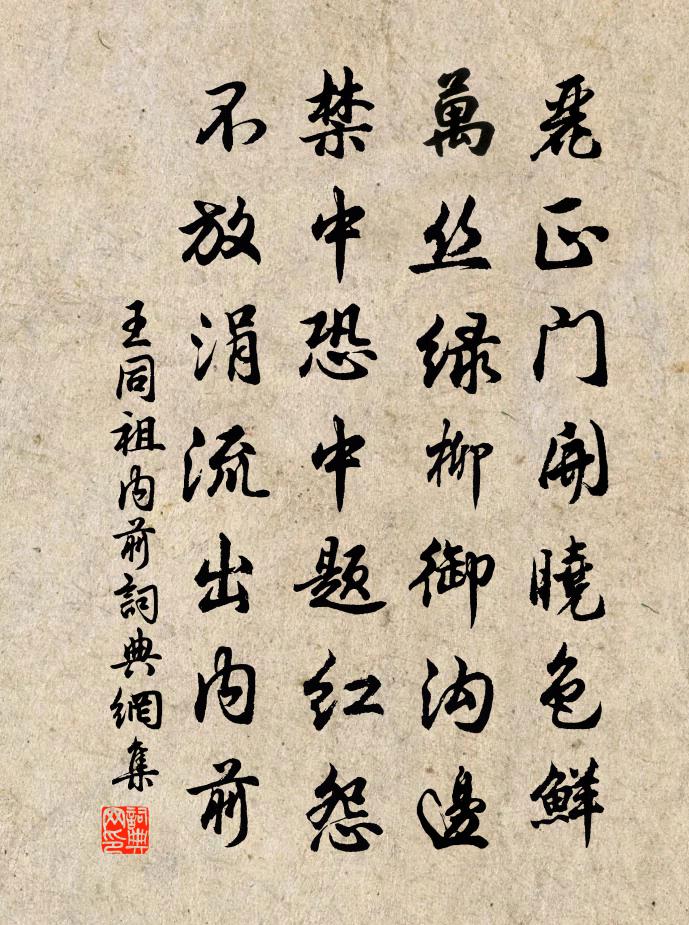 麗正門開曉色鮮
萬丝緑柳御沟邊
禁中恐中題紅怨
不放涓流出内前
王同祖内前詞典網集
詞典網印